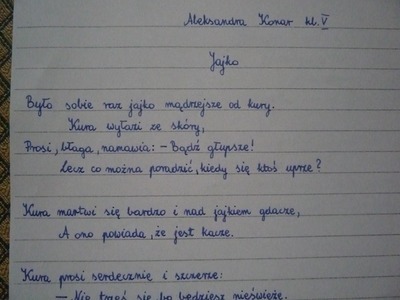 Aleksandra Konar kl. V
Jajko
Było sobie raz jajko mądrzejsze od kury.
Kura wyłazi ze skóry,
Prosi, błaga, namawia: – Bądź głupsze!
Lecz co można poradzić, kiedy się ktoś uprze?
Kura martwi się bardzo i nad jajkiem gdacze,
A ono powiada, że jest kacze.
Kura prosi serdecznie i szczerze:
– Nie trzęś się bo będziesz nieświeże.